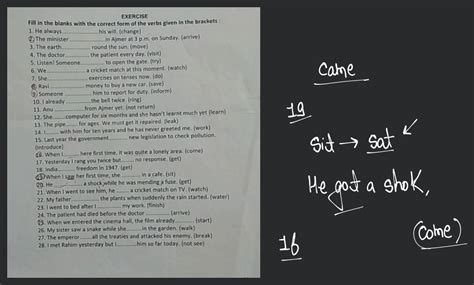 EXERCISE
Fill in the blanks with the correct form of the verbs given in the brackets :
1. He always................ his will. (change)
2. The minister ................ in Ajmer at 3 p.m. on Sunday. (arrive)
3. The earth................ round the sun. (move)
4. The doctor................ the patient every day. (visit)
5. Listen! Someone................ to open the gate. (try)
6. We................ a cricket match at this moment. (watch)
7. She................ exercises on tenses now. (do)
8. Ravi................ money to buy a new car. (save)
9. Someone ................ him to report for duty. (inform)
10. I already................ the bell twice. (ring)
11. Anu ................ from Ajmer yet. (not return)
12. She........computer for six months and she hasn't learnt much yet (learn)
13. The pipe........ for ages. We must get it repaired. (leak)
14. I........with him for ten years and he has never greeted me. (work)
15. Last year the government........ new legislation to check pollution.
(introduce)
16. When I........ here first time, it was quite a lonely area. (come)
17. Yesterday I rang you twice but........ no response. (get)
18. India........ freedom in 1947. (get)
19. When I saw her first time, she ........ in a cafe. (sit)
20. He........ a shock while he was mending a fuse. (get)
21. When I went to see him, he........ a cricket match on TV. (watch)
22. My father........ the plants when suddenly the rain started. (water)
23. I went to bed after I........ my work. (finish)
24. The patient had died before the doctor........ (arrive)
25. When we entered the cinema hall, the film already........ (start)
26. My sister saw a snake while she........in the garden. (walk)
27. The emperor........all the treaties and attacked his enemy. (break)
28. I met Rahim yesterday but I........him so far today. (not see)
came
19
sit → sat
He got a shok,
16
(come)